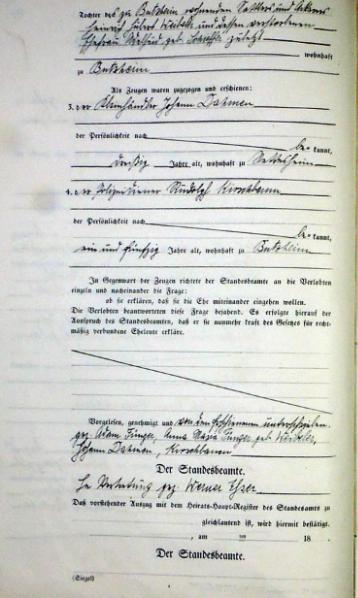 Tochter des zu Butzheim wohnenden Sattlers und Ackerers
Heinrich Hubert und dessen verstorbenen
Ehefrau geb. zuletzt
wohnhaft
zu Butzheim
Als Zeugen waren zugezogen und erschienen:
3. der Kleinhändler Johann Dahmen
der Persönlichkeit nach
be-kannt,
dreißig Jahre alt, wohnhaft zu
4. der Polizeidiener Rudolf Kirschbaum
der Persönlichkeit nach
be-kannt,
ein und fünfzig Jahre alt, wohnhaft zu Butzheim
In Gegenwart der Zeugen richtete der Standesbeamte an die Verlobten
einzeln und nacheinander die Frage:
ob sie erklären, daß sie die Ehe miteinander eingehen wollen.
Die Verlobten beantworteten diese Frage bejahend. Es erfolgte hierauf der
Ausspruch des Standesbeamten, daß er sie nunmehr kraft des Gesetzes für recht-
mäßig verbundene Eheleute erkläre.
Vorgelesen, genehmigt und von den Erschienenen unterschrieben
gez. Adam Jünger, Anna Maria Jünger geb.
Johann Dahmen, Kirschbaum
Der Standesbeamte.
In Vertretung gez. Werner Esser
Daß vorstehender Auszug mit dem Heirats-Haupt-Register des Standesamts zu
gleichlautend ist, wird hiermit bestätigt.
, am ten 18 .
Der Standesbeamte.
(Siegel)